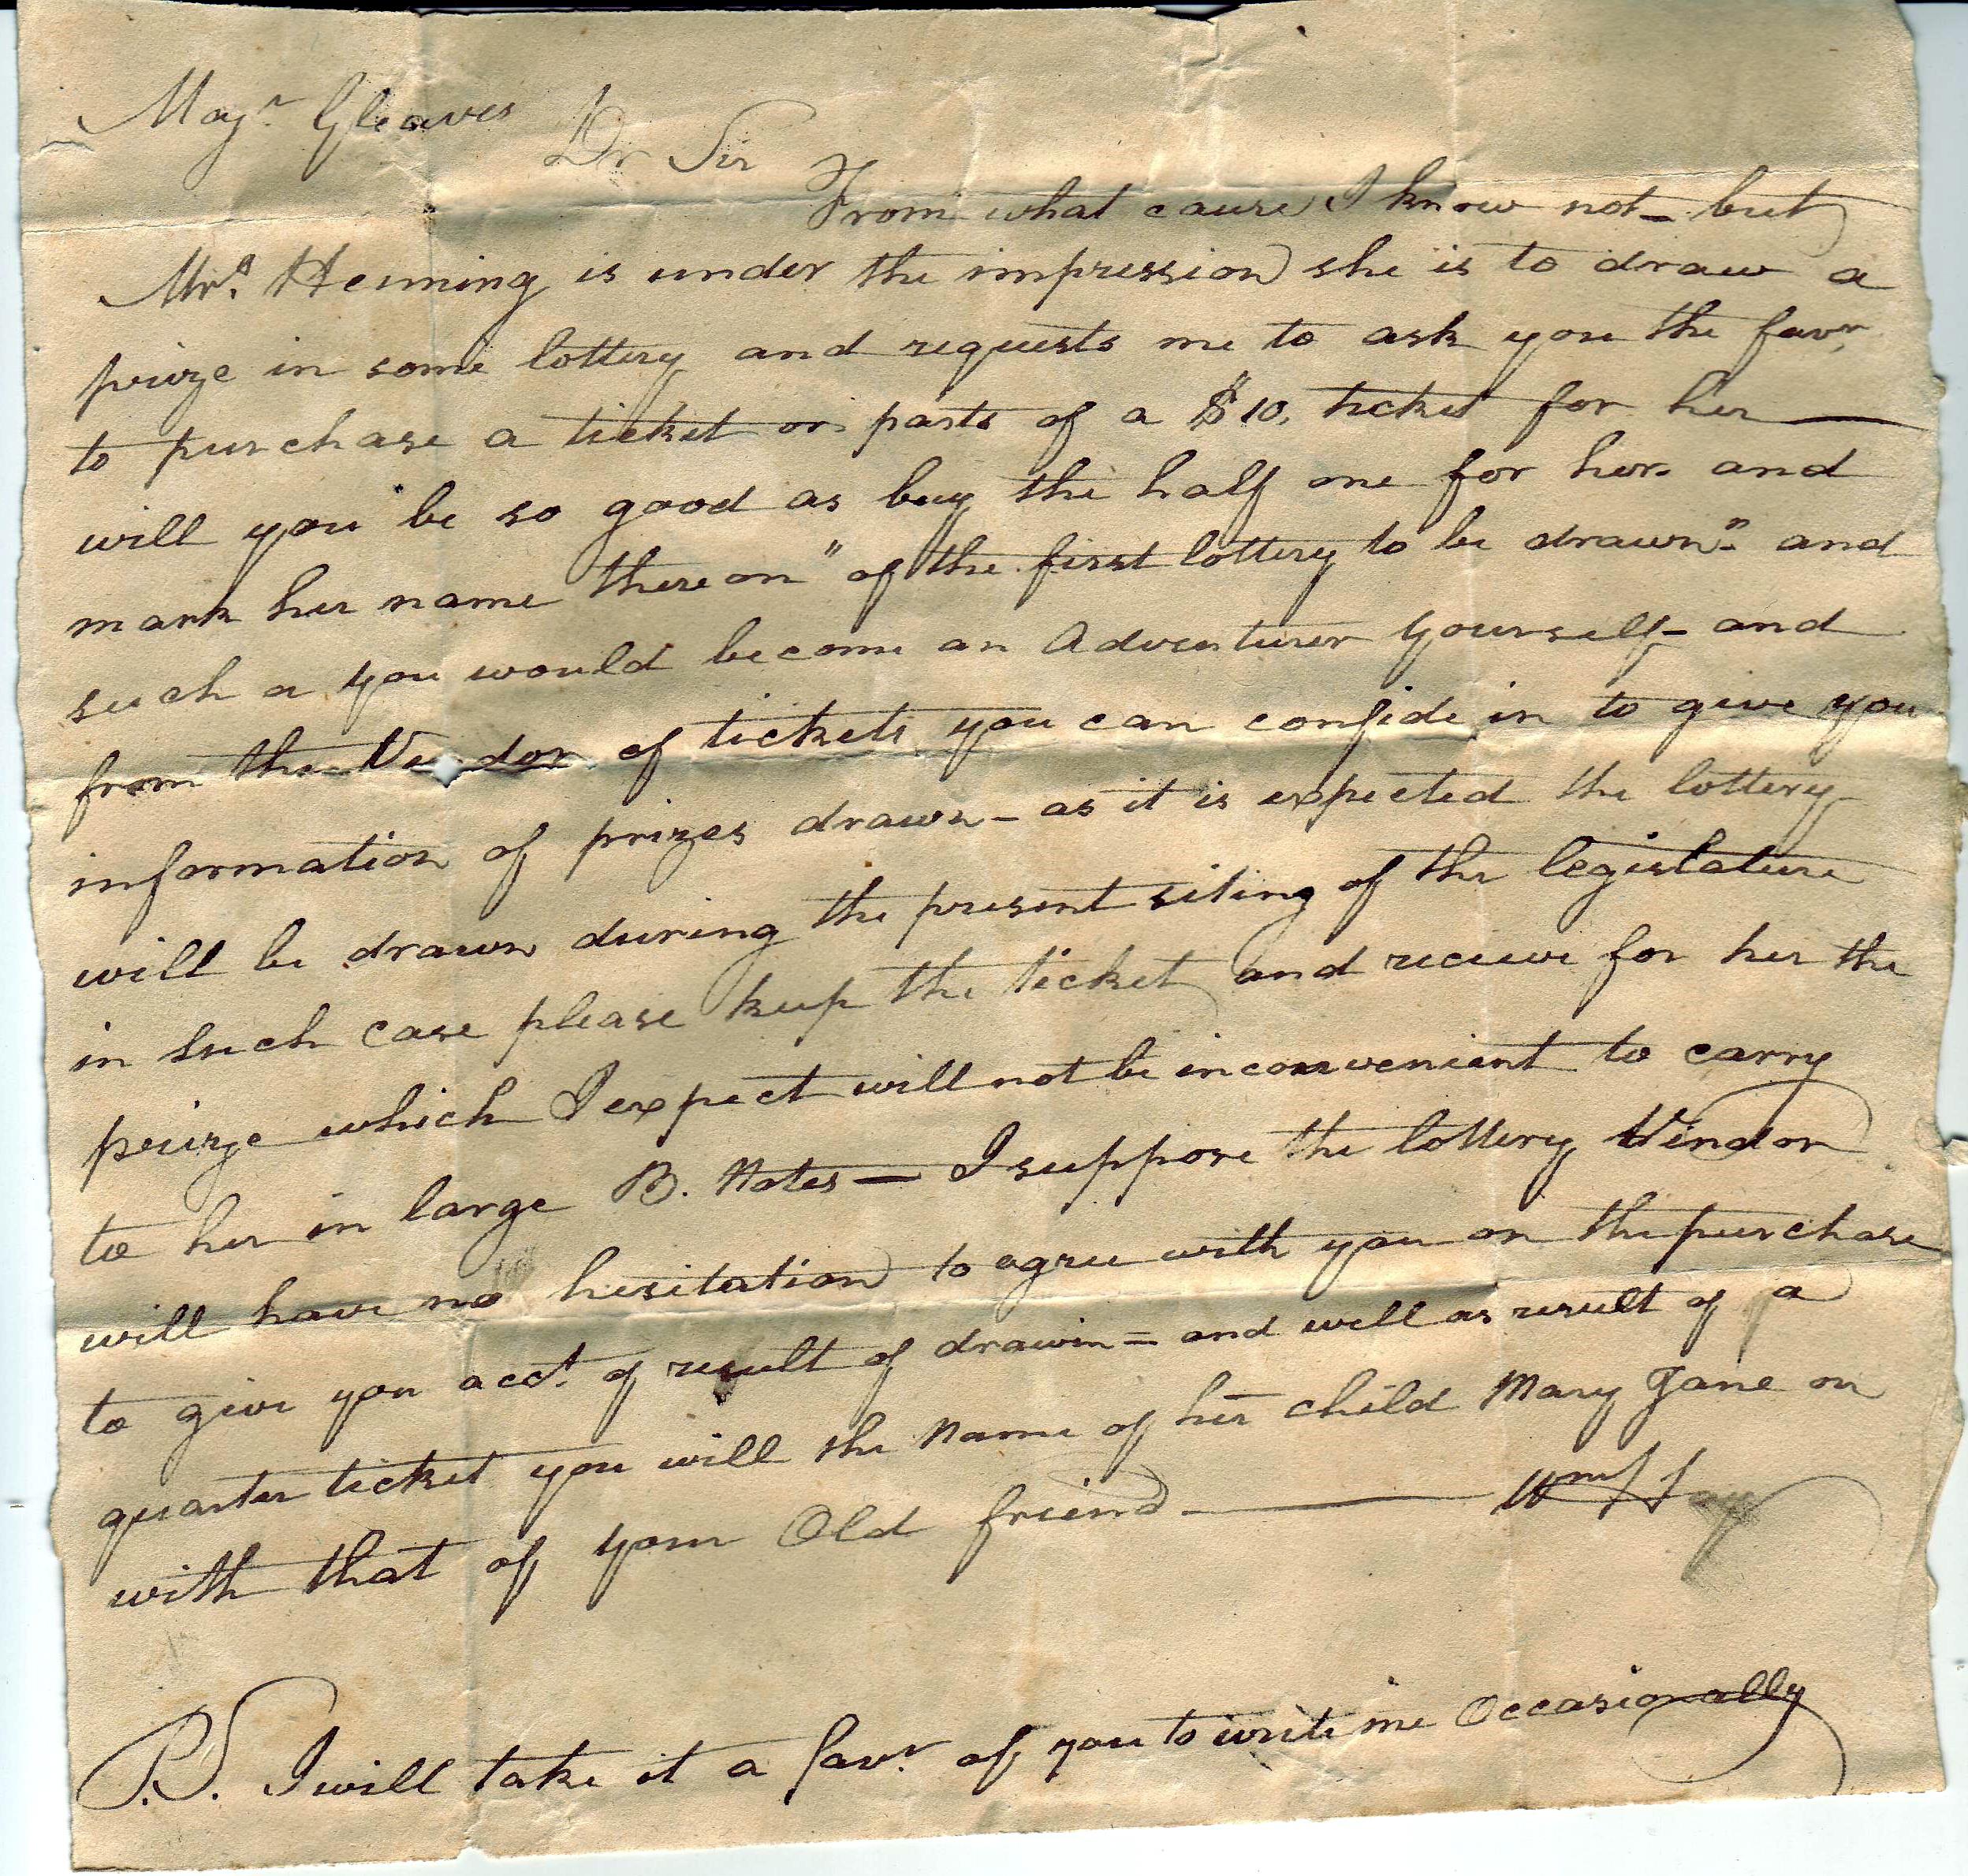 Majr. Gleaves
Dr Sir
From what cause I know not - but
Mrs. Henning is under the impression she is to draw a
prize in some lottery and requests me to ask you the favr.
to purchase a ticket or parts of a $10. ticket for her —
will you be so good as buy the half one for her - and
mark her name thereon " of the first lottery to be drawn" - and
such a you would become an Adventurer yourself - and
from the Vendor of tickets you can confide in to give you
information of prizes drawn - as it is expected the lottery
will be drawn during the present siting of the legislature
in such case please keep the ticket and receive for her the
prize which I expect will not be inconvenient to carry
to her in large B. Notes — I suppose the lottery Vendor
will have no hesitation to agree with you on the purchase
to give you acct. of result of drawin = and well as result of a
quarter ticket you will the name of her child Mary Jane on
with that of your Old friend — Wm
P.S. I will take it a favr. of you to write me Occasionally